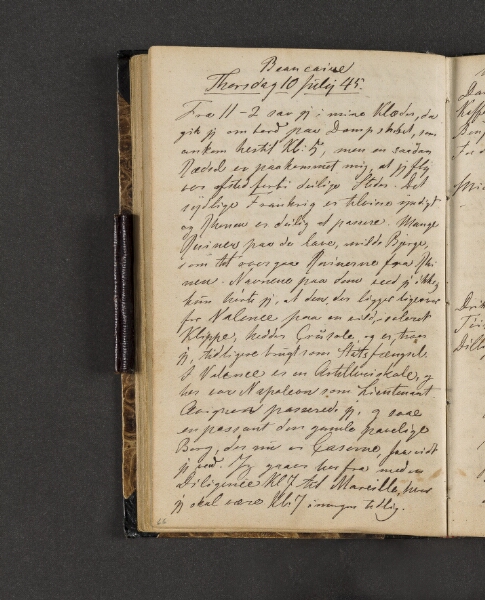 Beaucaire
Thorsdag 10 July 45.
Fra 11–2 sov jeg i mine Klæder, da
gik jeg om bord paa Dampskibet, som
ankom hertil Kl: 5, men en saadan
Rædsel er paakommet mig, at jeg flyver
afsted forbi deilige Steder. Det
sydlige Frankrig er yndigt
og Rhonen er deilig at passere. Mange
Ruiner paa de lave, milde Bjerge,
som tit overgaae Ruinerne fra Rhinen.
Navnene paa dem veed jeg ikke,
kun hørte jeg, at den, der ligger ligeover
for Valence paa en isoleret
Klippe, hedder Crüsole, og er, troer
jeg, tidligere brugt som Statsfængsel.
I Valence er en Artilleriskole, og
her var Napoleon som Lieutenant
Avignon passerede jeg, og saae
en passant den gamle pavelige
Borg, der nu er Caserne, saavidt
jeg veed. Jeg gaaer herfra med en
Diligence Kl. 7 til Marseille, hvor
jeg skal være Kl: 7 imorgen tidlig.